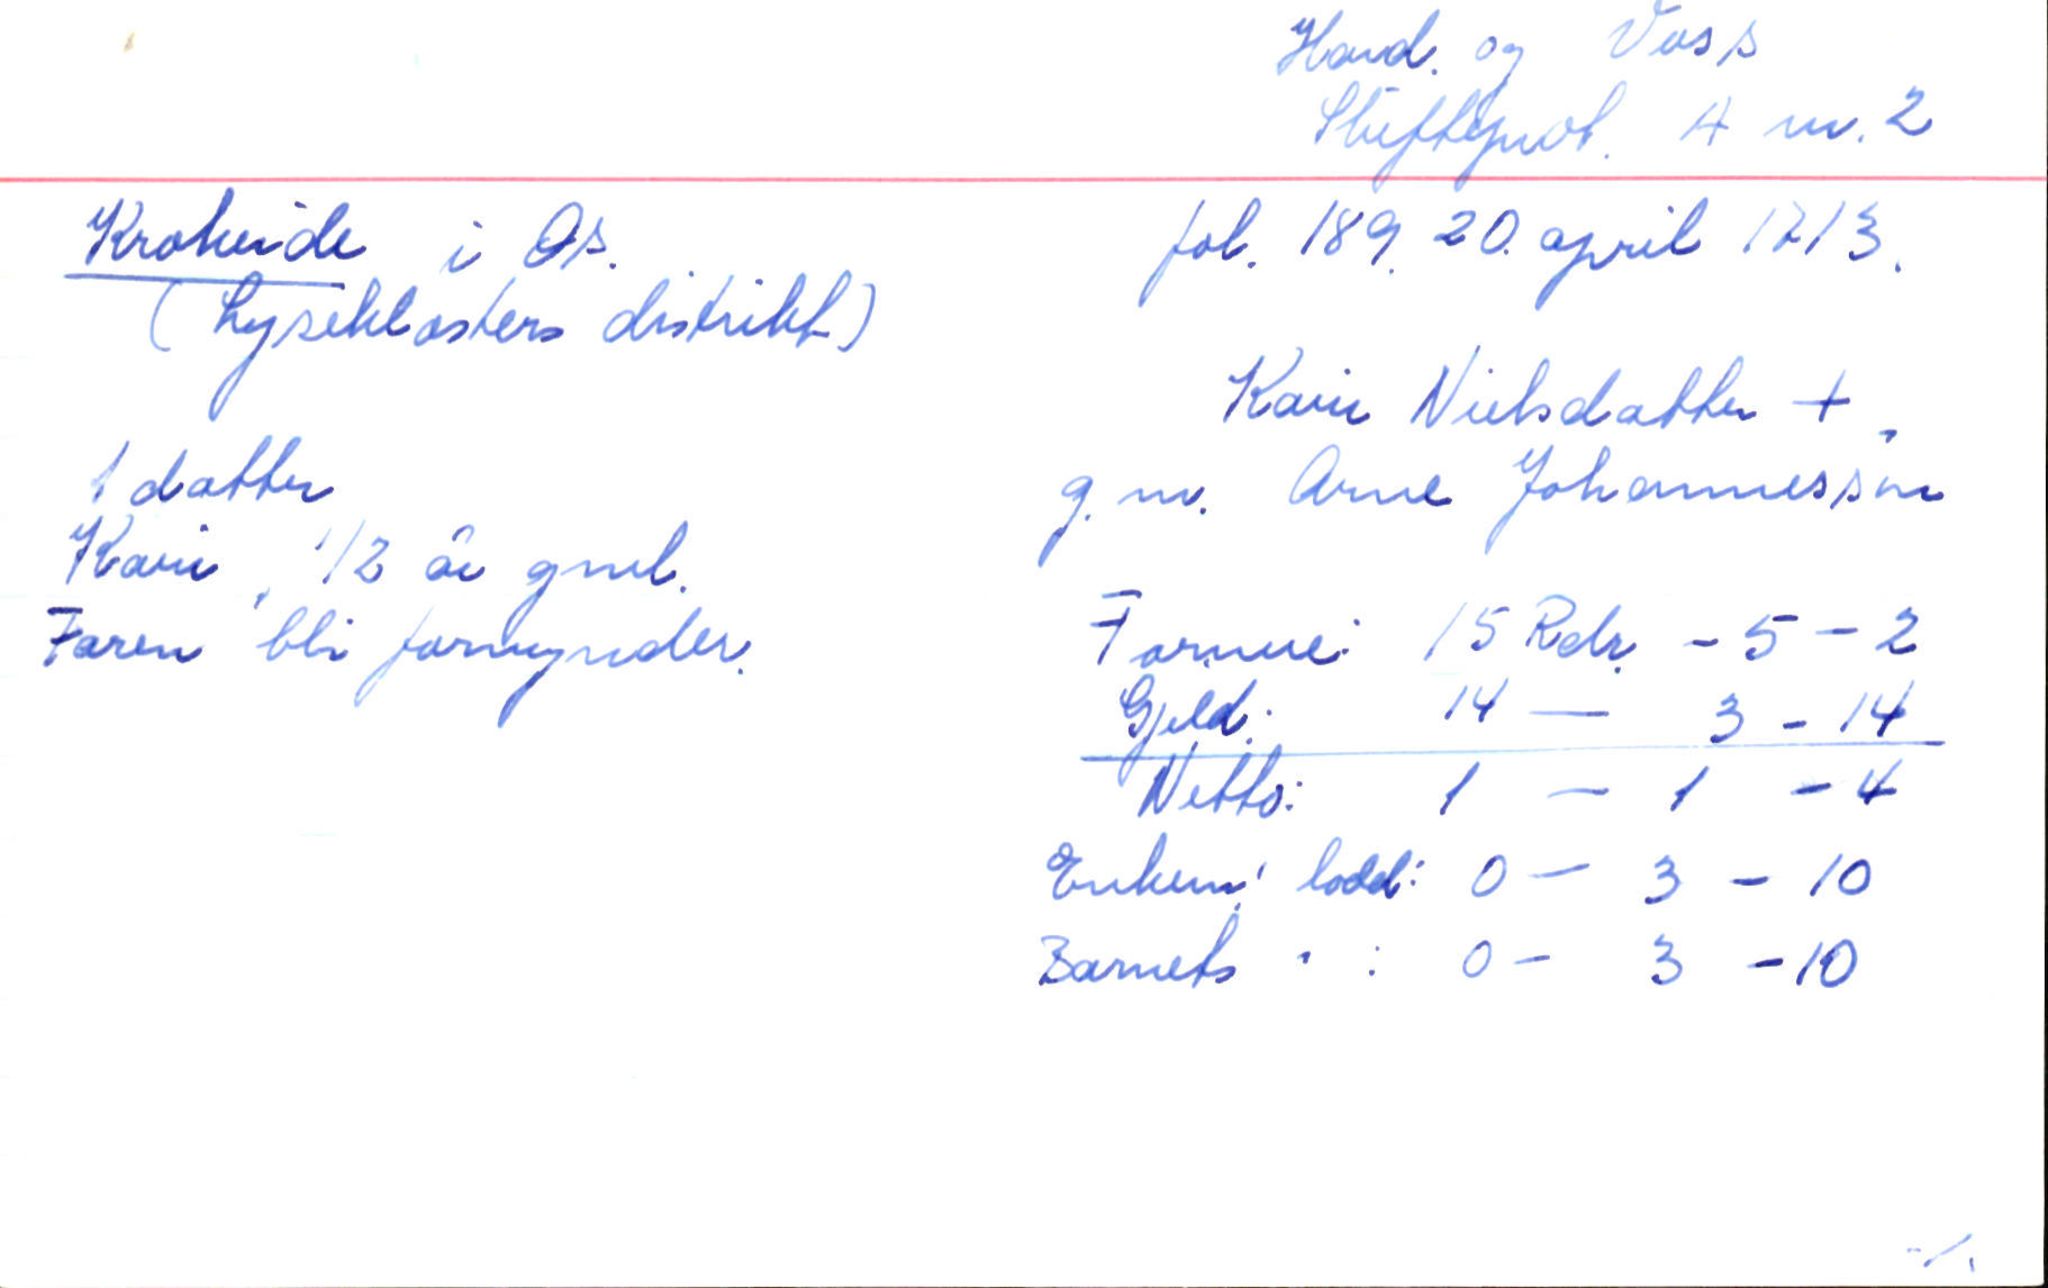 Hard. og Voss
Skifteprot. A nr. 2
Krokeide i Os.
(Lyseklosters distrikt)
fol. 189. 20. april 1713.
Kari Nielsdatter +,
g.m. Arne Johannessøn
1 datter
Kari, 1/2 år gml.
Faren bli formynder.
Formue: 15 Rdr. - 5 - 2
Gjeld: 14 — 3 - 14
Netto: 1 — 1 - 4
lodd: 0 — 3 - 10
Barnets " : 0 - 3 - 10